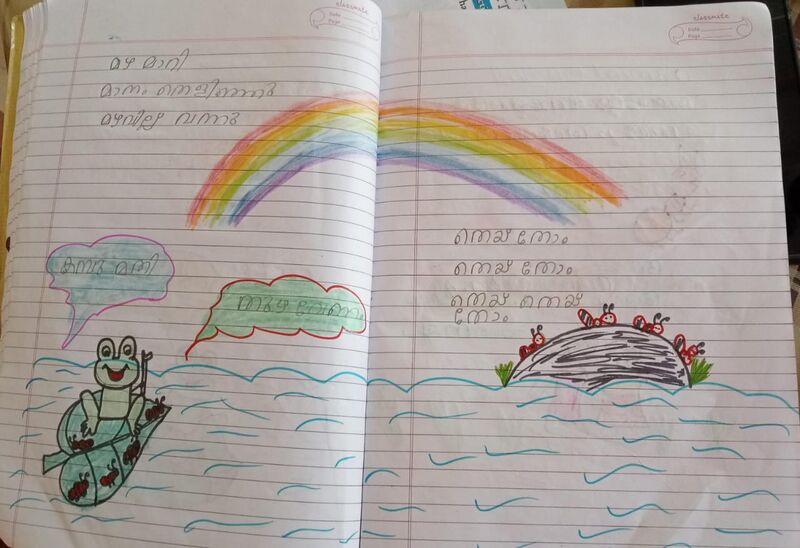 classmate
Date
Page
classmate
Date
Page
മഴ മാറി
മാനം തെളിഞ്ഞു
മഴവില്ല് വന്നു
മതി
വേണം
തെയ് തോം
തെയ് തോം
തെയ് തെയ്
തോം